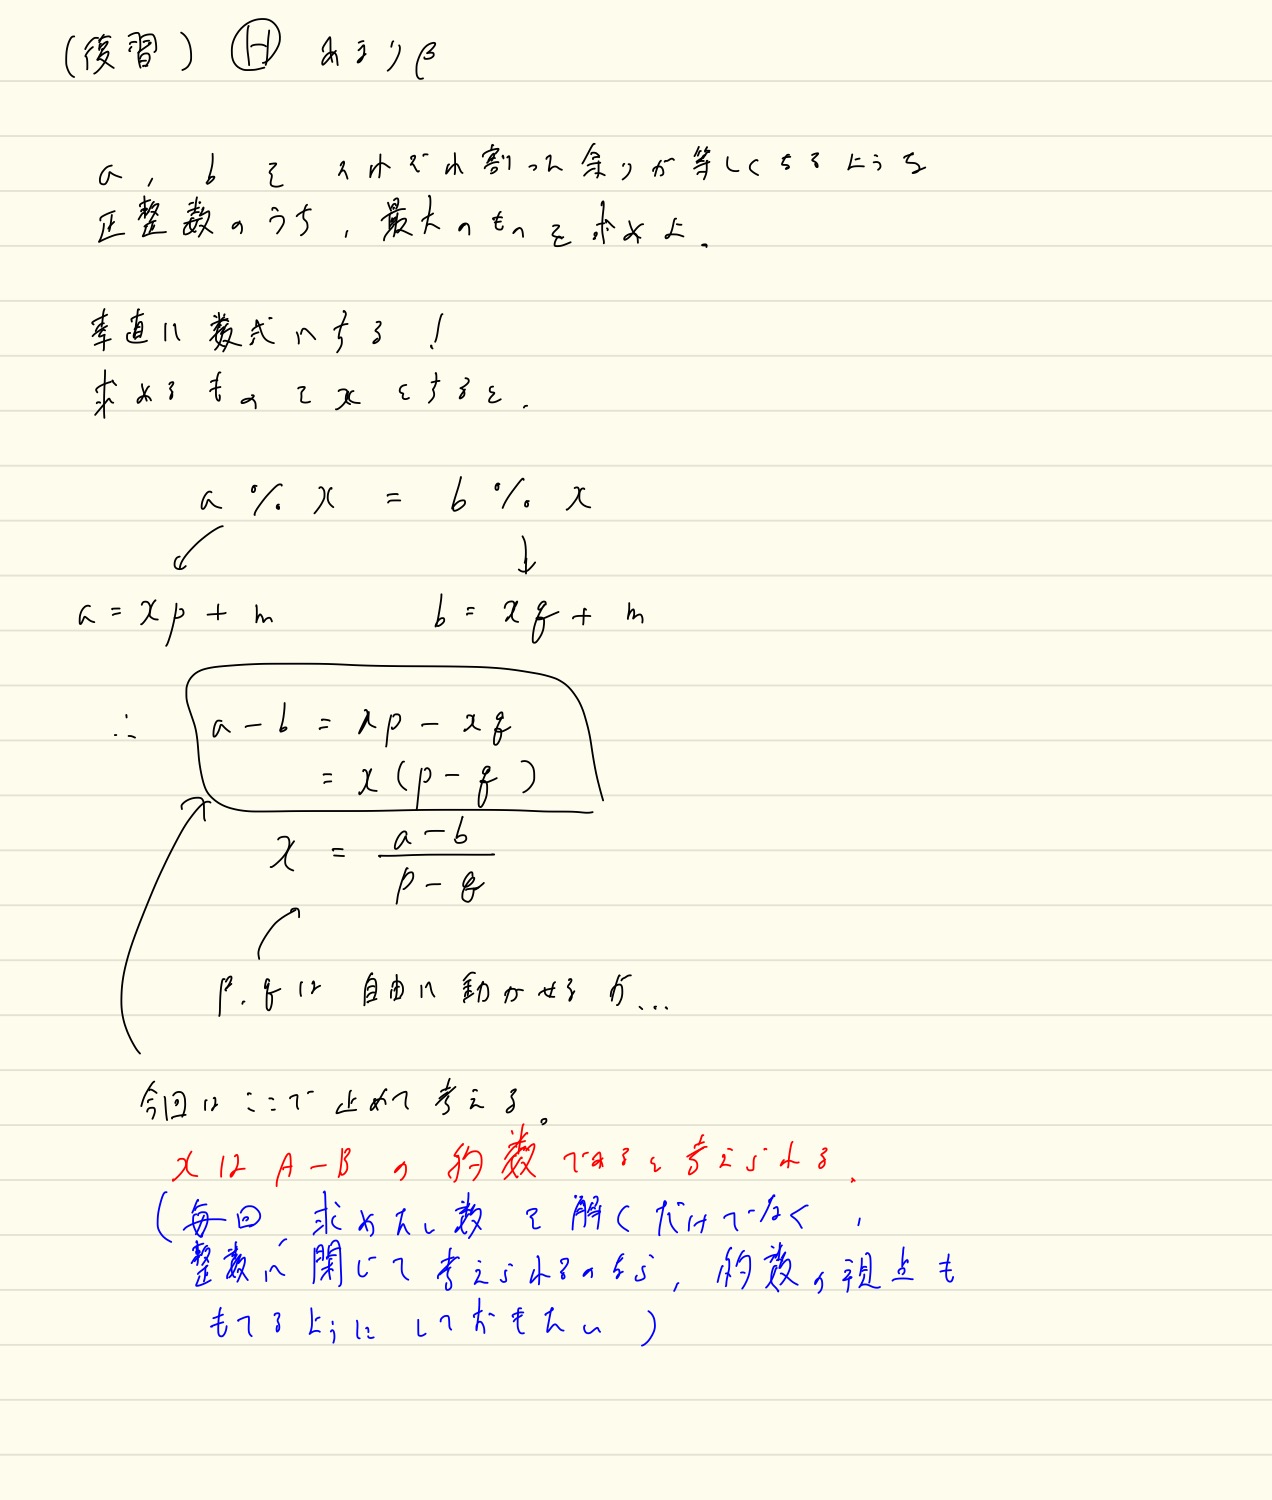 (復習) Ⓗ あまりβ
a, b を それぞれ割った余りが等しくなるような
正整数のうち, 最大のものを求めよ.
率直に数式にする!
求めるものをxとすると.
a % x = b % x
a = xp + m b = xq + m
∴ a - b = xp - xq
= x(p - q)
x = \frac{a-b}{p-q}
p.qは 自由に動かせるが...
今回はここで止めて考える。
xは A-B の約数であると考えられる.
(毎回、求めたい数を解くだけでなく,
整数に閉じて考えられるのなら, 約数の視点も
もてるようにしておきたい)